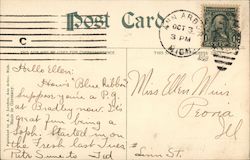 Post Card
ANN ARBOR
OCT 3
3 PM
MICH.
C
Hello Ellen:
How's Blue Ribbon
Suppose you're a P.G.
at Bradley now. It's
great fun being a
Soph. Started in on
the Fresh last Tues
Rits Sime to Ted
Miss Ellen Muir
Peoria
Ill
Linn St.